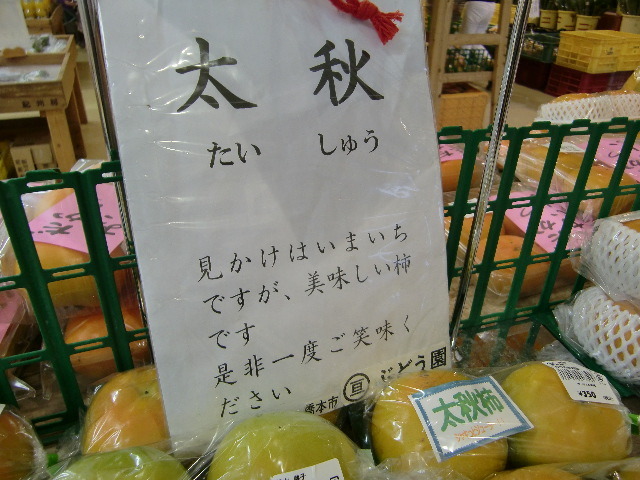 太秋
たいしゅう
見かけはいまいち
ですが、美味しい柿
です
是非一度ご笑味く
ださい
橋本市 亘 ぶどう園
太秋柿
¥350